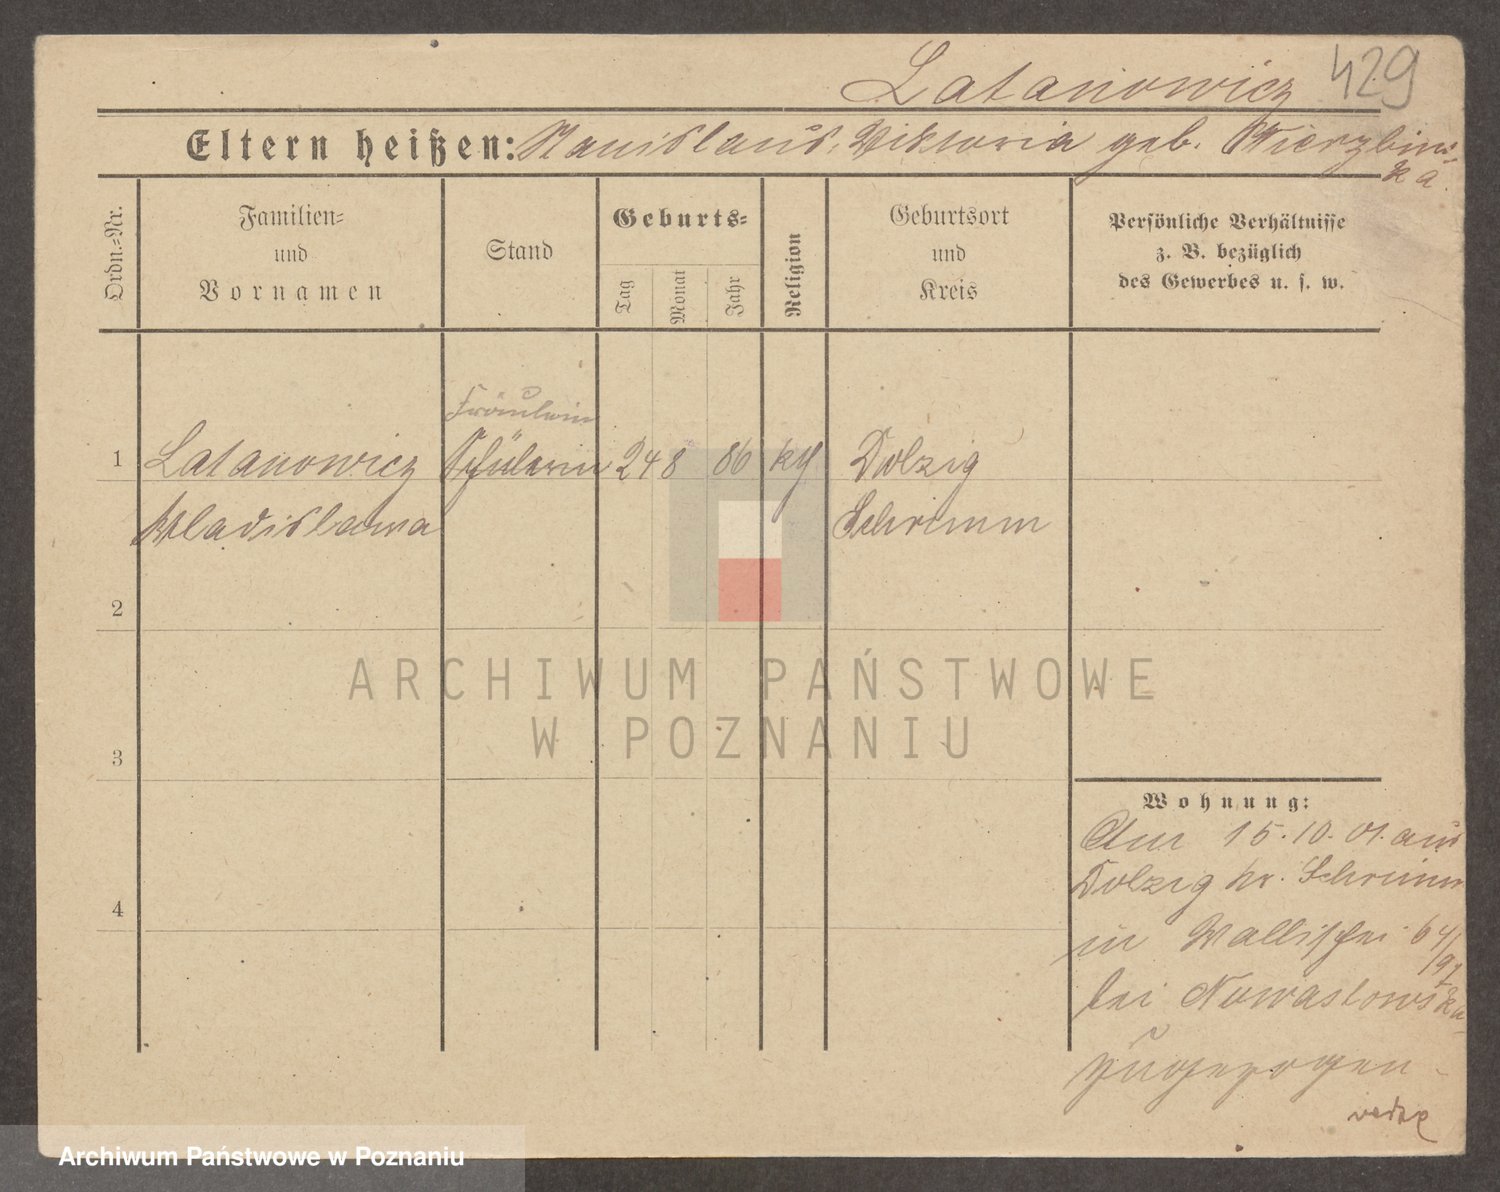 Latanowicz 429
Eltern heißen: Stanislaus, Viktoria geb. Wierzbins-
ka.
Ordn.=Nr.
Familien=
und
Vornamen
Stand
Geburts=
Tag
Monat
Jahr
Religion
Geburtsort
und
Kreis
Persönliche Verhältnisse
z. B. bezüglich
des Gewerbes u. s. w.
Fräulein
1 Latanowicz Schülerin 24 8 86 kth Dolzig
Wladislawa Schrimm
2
3
4
Wohnung:
Am 15.10.01. aus
Dolzig Kr. Schrimm
in Wallischei 64/
bei Nowaslowska
zugezogen
ARCHIWUM PAŃSTWOWE
W POZNANIU
Archiwum Państwowe w Poznaniu